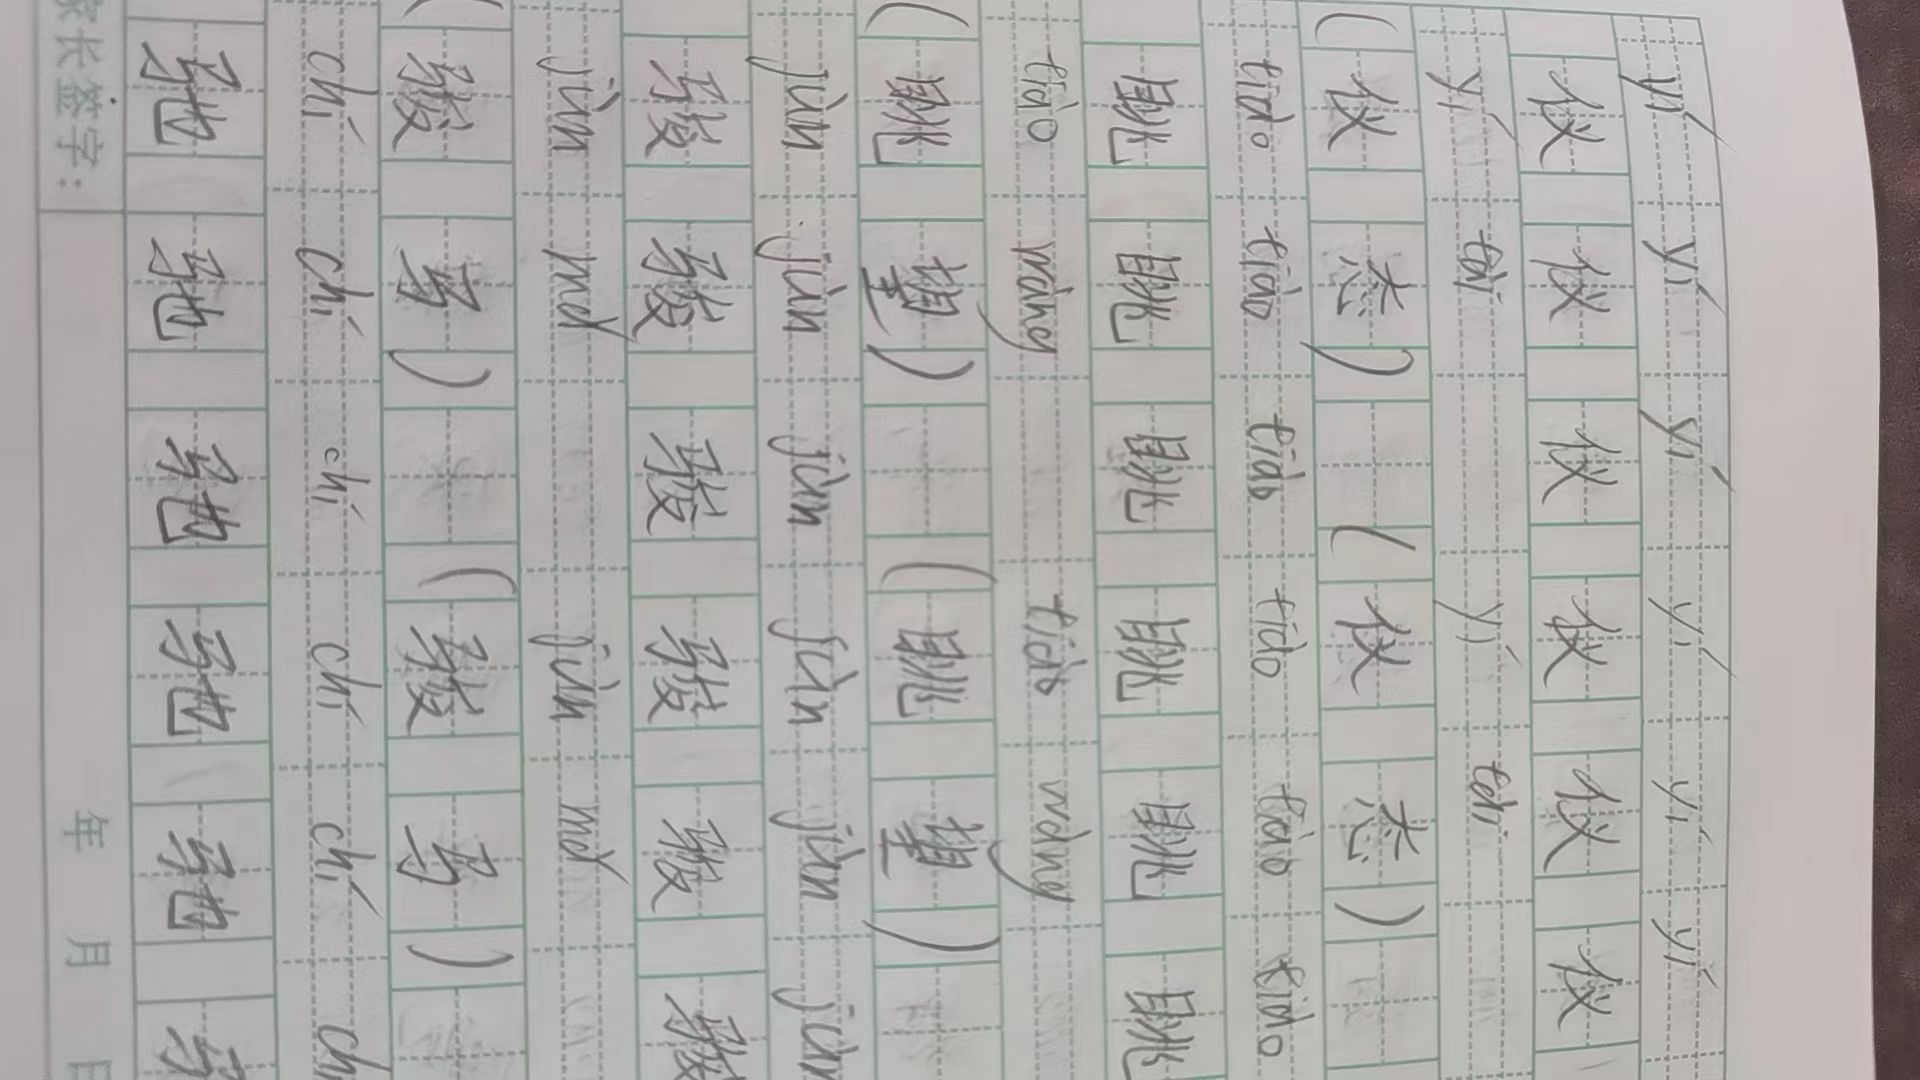 yí yí yí yí yí yí
仪 仪 仪 仪 仪 仪
yí tài yí tài
(仪态) (仪态)
tiào tiào tiào tiào tiào tiào
眺 眺 眺 眺 眺 眺
tiào wàng tiào wàng
(眺望) (眺望)
jùn jùn jùn jùn jùn jùn
骏 骏 骏 骏 骏 骏
jùn mǎ jùn mǎ
(骏马) (骏马)
chí chí chí chí chí
驰 驰 驰 驰 驰
家长签字: 年 月 日